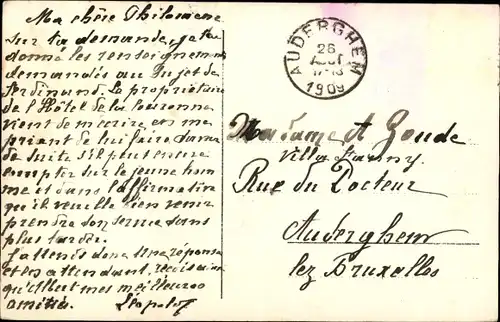 Ma chère Philomène
Sur ta demande, je t'ai
donné les renseignements
demandés au sujet de
Ferdinand. Le propriétaire
de l'Hôtel de la Couronne
vient de m'écrire en me
priant de lui faire
de suite s'il peut encore
compter sur le jeune hom
me et dans l'affirmative
qu'il veuille bien venir
prendre son service sans
plus tarder.
J'attends donc une réponse
et en attendant, reçois ainsi
qu'Albert mes meilleures
amitiés. Léopold
AUDERGHEM
26
AOUT
1909
Madame A Goude
Villa Fanny
Rue du Docteur
Auderghem
lez Bruxelles